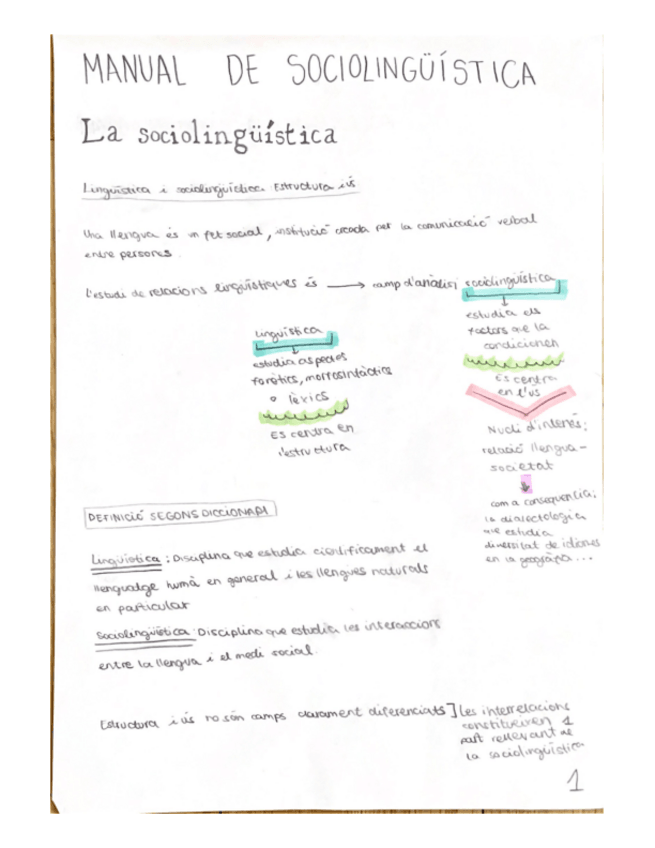 MANUAL DE SOCIOLINGÜÍSTICA
La sociolingüística
Lingüística i sociolingüística: Estructura i ús
Una llengua és un fet social, institució creada per la comunicació verbal
entre persones.
L'estudi de relacions lingüístiques és → camp d'anàlisi sociolingüística
estudia els
factors que la
condicionen
Es centra
en l'ús
Nucli d'interès:
relació llengua-
societat
com a consequència:
la dialectologia
que estudia
diversitat de idiomes
en la geogràfia...
Lingüística
estudia aspectes
fonètics, morfosintàctics
o lèxics
Es centra en
l'estructura
DEFINICIÓ SEGONS DICCIONARI
Lingüística: Disciplina que estudia científicament el
llenguatge humà en general i les llengües naturals
en particular
Sociolingüística: Disciplina que estudia les interaccions
entre la llengua i el medi social.
Estructura i ús no són camps clarament diferenciats] Les interrelacions
constitueixen 1
part rellevant de
la sociolingüística
1